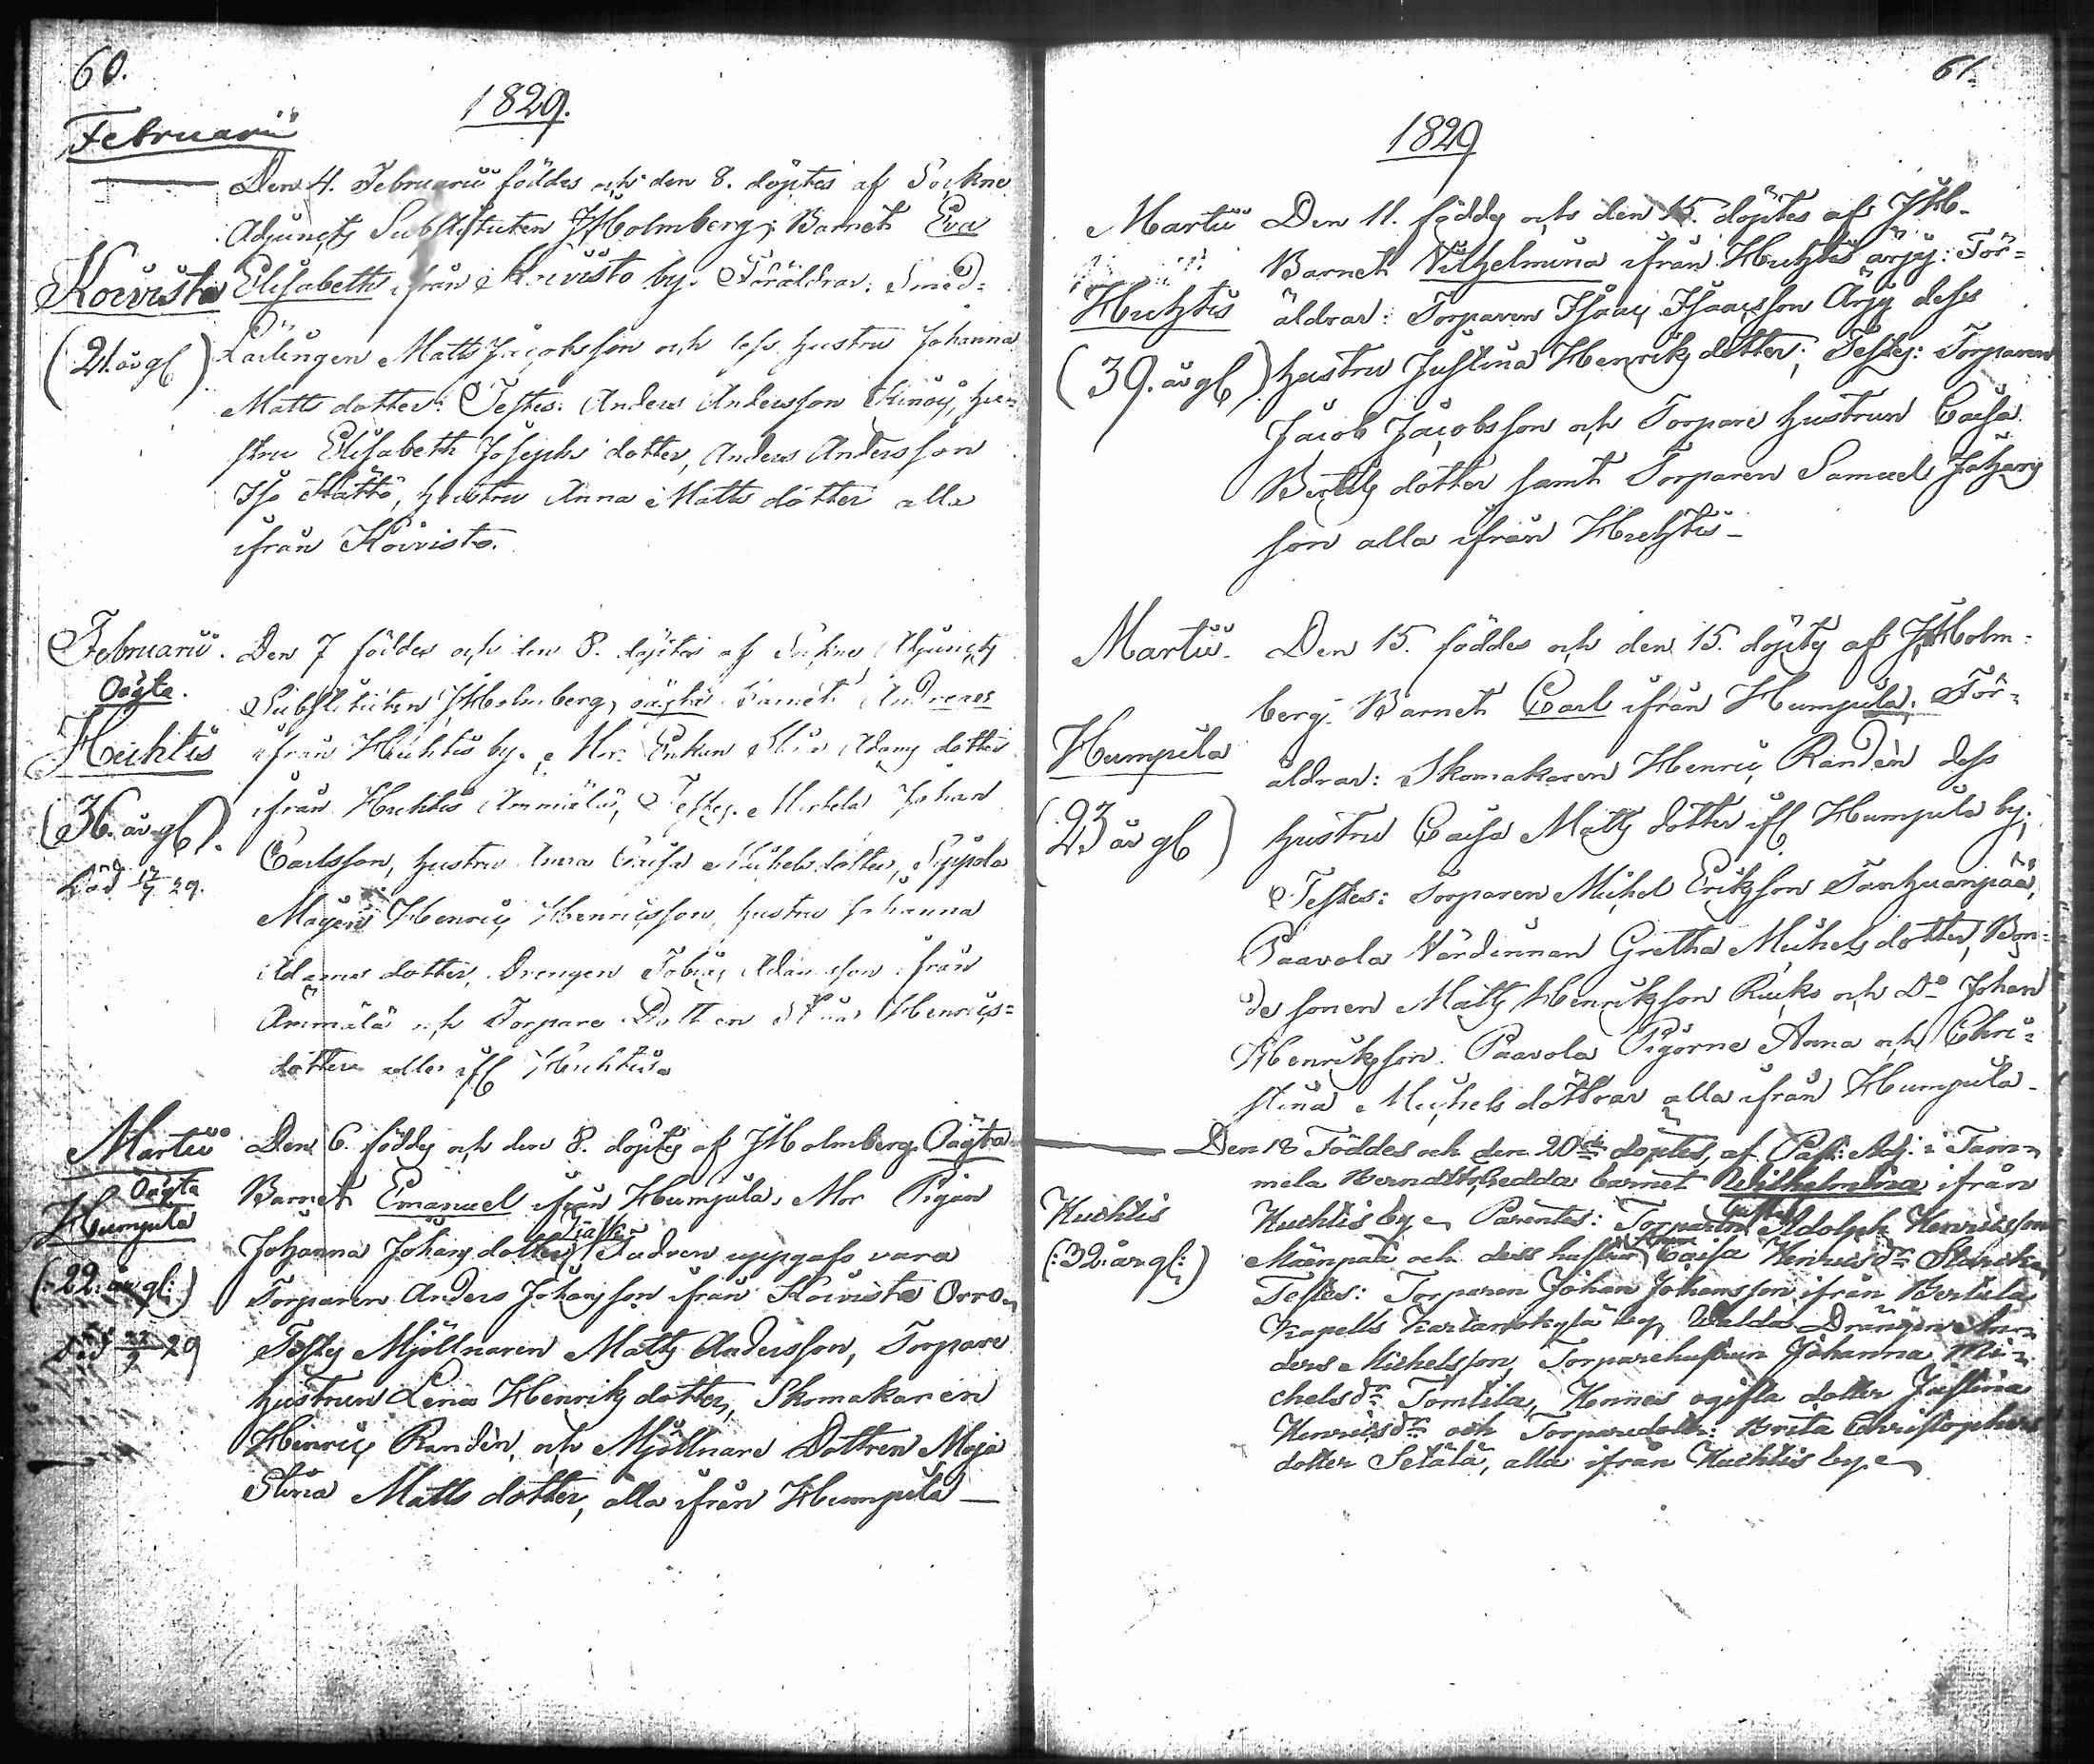 60.
1829.
Februarii
Den 4. Februarii föddes och den 8. döptes af Sockne
Adjuncts Substituten JHolmberg; Barnet Eva
Koivisto
Elisabeth ifrån Koivisto by. Föräldrar: Smed-
(21. år gl)
Lärlingen Matts Jacobsson och dess hustru Johanna
Matts dotter: Testes: Anders Andersson Kinoy, hu-
stru Elisabeth Josephs dotter, Anders Andersson
Iso hustru Anna Matts dotter alla
ifrån Koivisto.
Februarii.
Oägta.
Huhtis
(36. år gl).
Död 12/7 29.
Den 7 föddes och den 8. döptes af Sockne Adjuncts
Substituten JHolmberg, oägta Barnet Andreas
ifrån Huhtis by. Mor: Enkan Stina Adams dotter
ifrån Huhtis Ammälä, Testes. Johan
Carlsson, hustru Anna Caisa Michelsdotter, Seppola
Mågen Henric Henricsson, hustru Johanna
Adams dotter, Drengen Tobias Adamsson ifrån
Ammälä och Torpare Dottren Stina Henrics-
dotter alla ifl Huhtis.
Martii
Oägta
Humpila
(:22. år gl:)
Död 22/7 29
Den 6. föddes och den 8. döptes af JHolmberg. Oägta
Barnet Emanuel ifrån Humpila. Mor Pigan
Johanna Johans dotter Fadren uppgafs vara
Torparen Anders Johansson ifrån Koivisto Orro.
Testes Mjöllnaren Matts Andersson, Torpare
hustrun Lena Henriks dotter, Skomakaren
Henric Randèn, och Mjöllnare Dottren Maja
Stina Matts dotter, alla ifrån Humpila —
61.
1829
Martii
Huhtis
(39. år gl)
Den 11. föddes och den 15. döptes af JHb-
Barnet Vilhelmina ifrån Huhtis ärjy: För-
äldrar: Torparen Isaac Isaacsson Ärjy dess
hustru Justina Henriks dotter; Testes: Torparen
Jacob Jacobsson och Torpare hustrun Caisa
Bertils dotter samt Torparen Samuel Johans
son alla ifrån Huhtis –
Martii.
Humpila
(23 år gl)
Den 15. föddes och den 15. döptes af JHolm-
berg. Barnet Carl ifrån Humpila. För-
äldrar: Skomakaren Henric Randèn dess
hustru Caisa Matts dotter ifl. Humpila by;
Testes: Torparen Michel Eriksson Tanhuanpää,
Paavola Värdinnan Gretha Michels dotter, Bon-
de sonen Matts Henriksson Ruko och Do Johan
Henriksson. Paavola Pigorne Anna och Chri-
stina Michels döttrar alla ifrån Humpila –
Huchtis
(:32. år gl:)
Den 18 Föddes och den 20de döptes, af Past: Adj: i Tam-
mela Berndt Hedda barnet Wilhelmina ifrån
Huchtis by. Parentes: Torparen Adolph Henricsson
Mäenpää och dess hustru Caisa Henricsdr
Testes: Torparen Johan Johansson ifrån Bertula
Kapells by, Walda Drängen An-
ders Michelsson, Torparehustrun Johanna Mi-
chelsdr Tomtila, Hennes ogifta dotter Justina
Henricsdr och Torparedottr: Brita Christophers
dotter Setälä, alla ifrån Huchtis by.